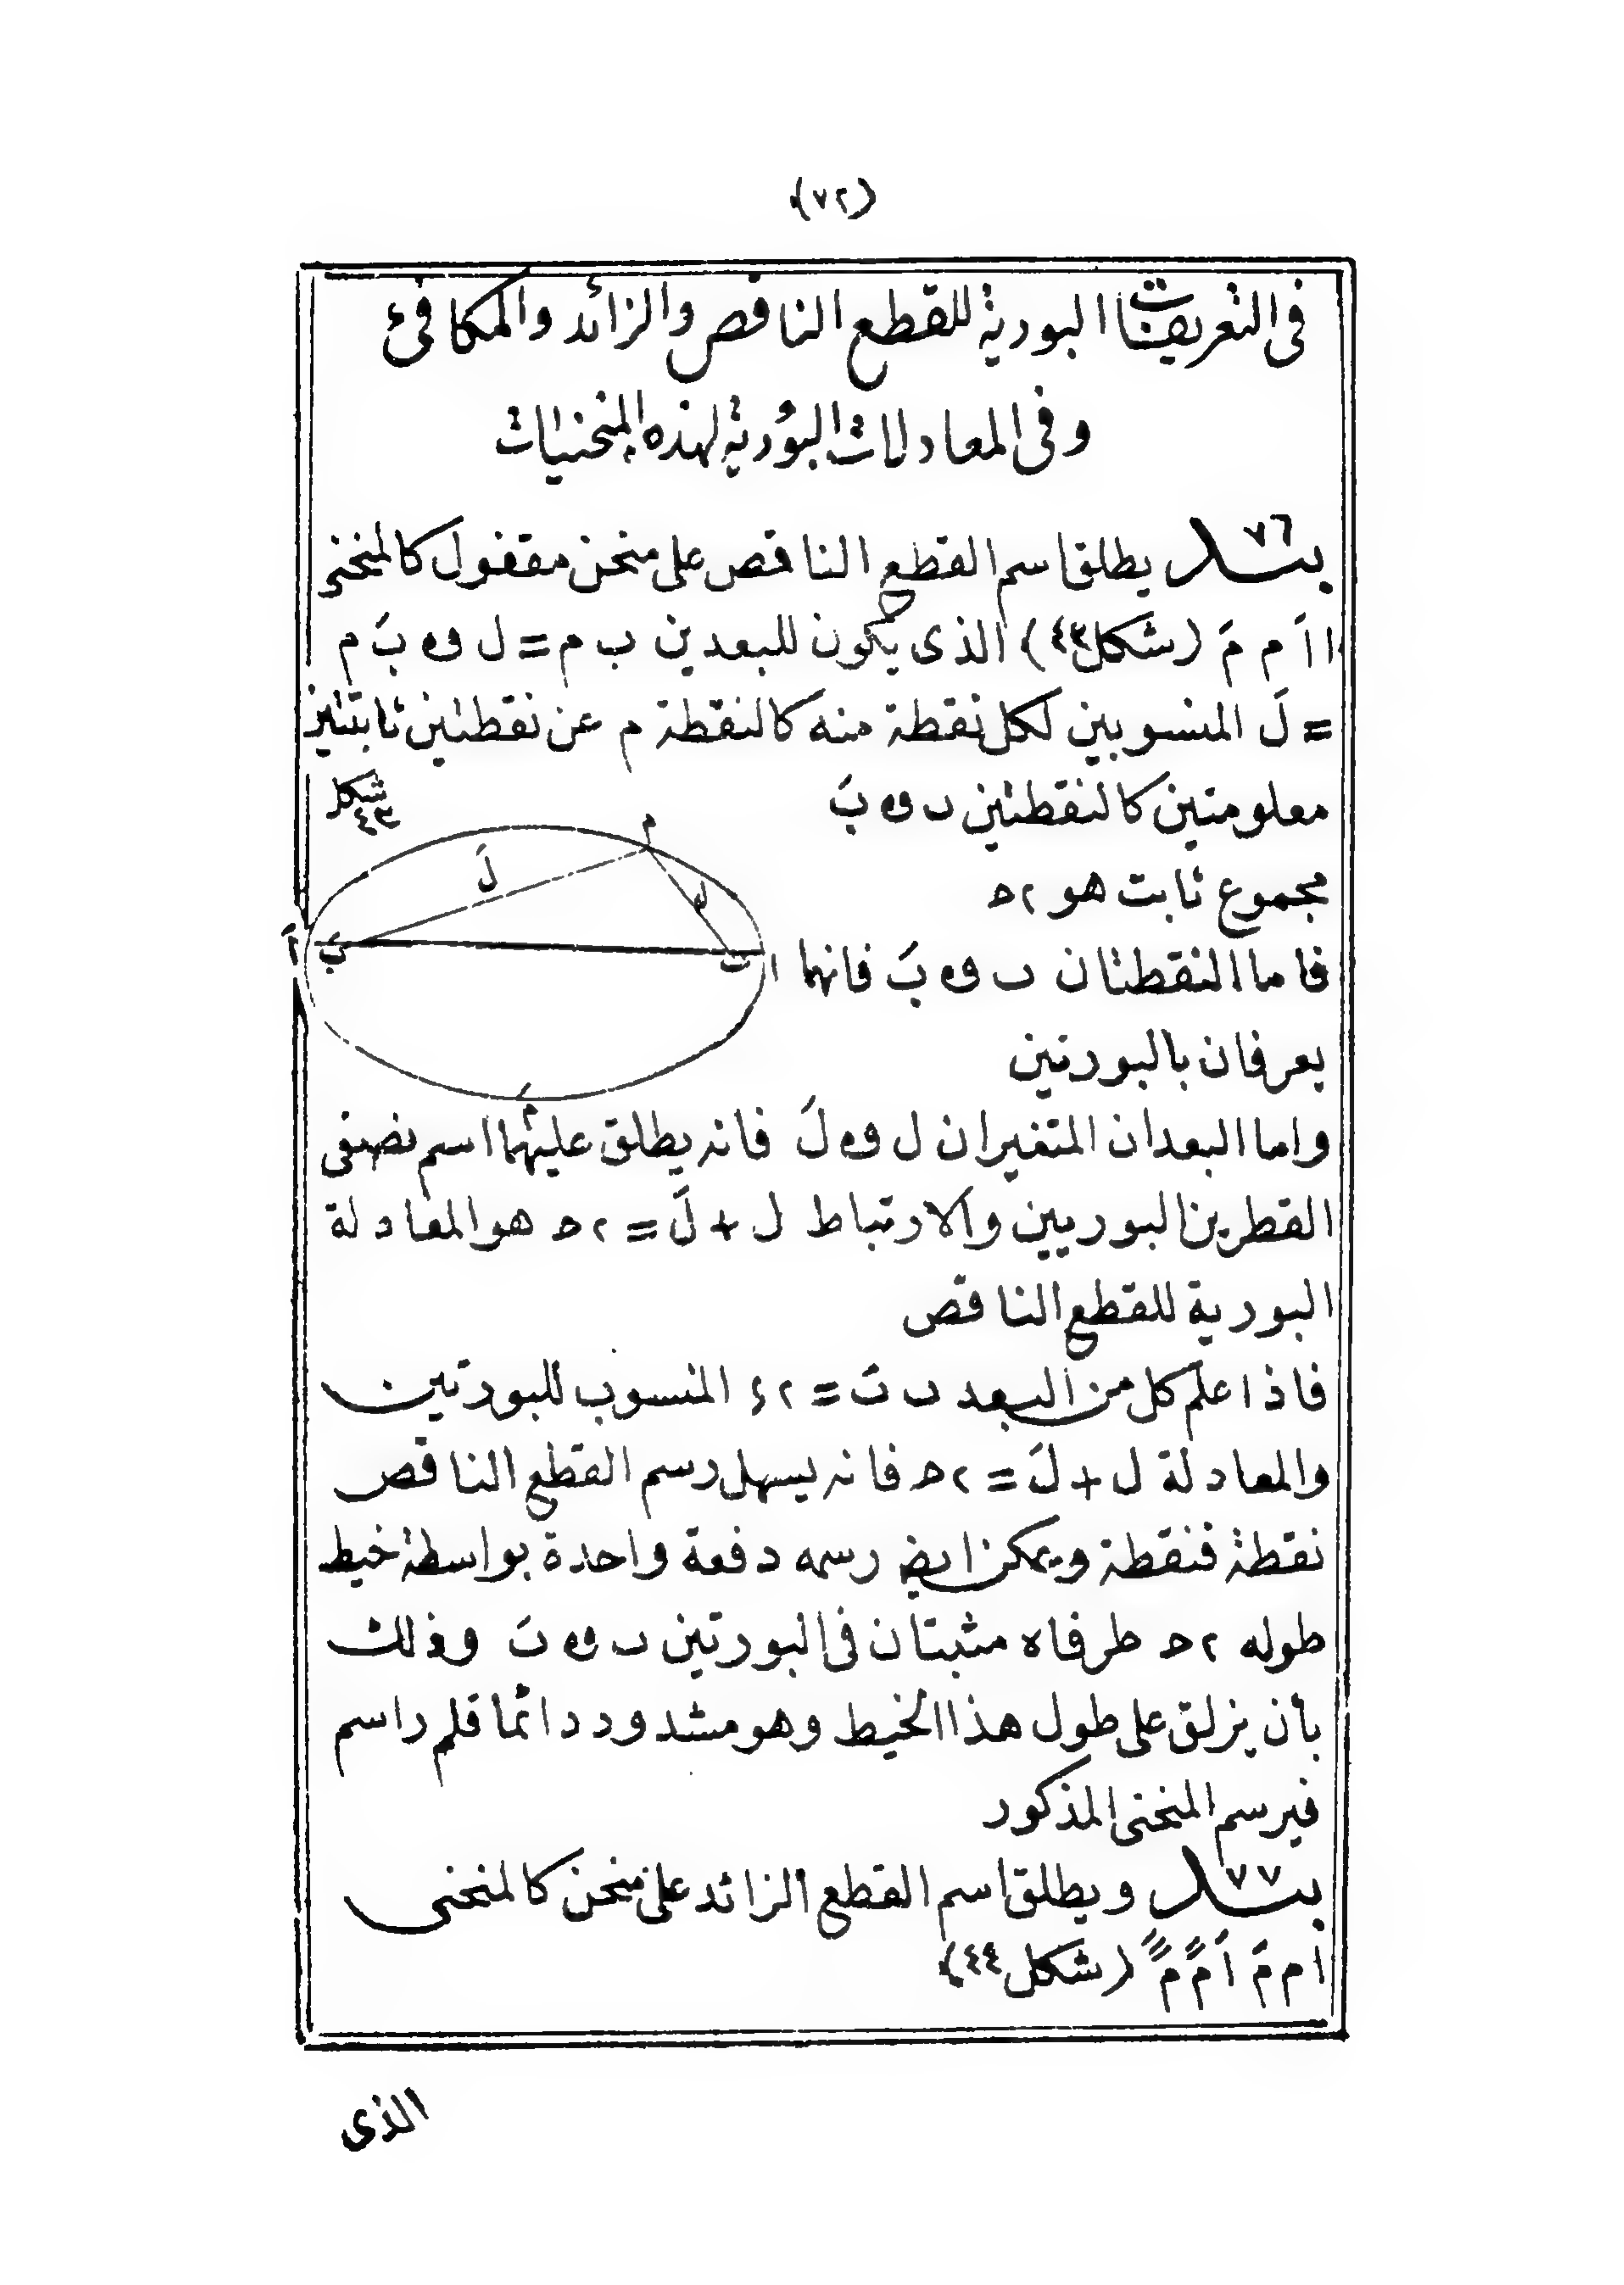 (٧٢)
فى التعريفات البورية للقطع الناقص والزائد والمكافئ
وفى المعادلات البؤرية لهذه المنحنيات
بند ٧٦ يطلق اسم القطع الناقص على منحن مقفول كالمنحنى
ا اَ م مَ (شكل ٤٣) الذى يكون للبعدين ب م = ل و بَ م
= لَ المنسوبين لكل نقطة منه كالنقطة م عن نقطتين ثابتتين
معلومتين كالنقطتين ب و بَ
مجموع ثابت هو ٢ح
فاما النقطتان ب و بَ فانهما
يعرفان بالبورتين
شكل ٤٣
م
لَ
ل
اَ
بَ
ب
ا
مَ
واما البعدان المتغيران ل و لَ فانه يطلق عليهما اسم نصفى
القطرين البوريين والارتباط ل + لَ = ٢ح هو المعادلة
البورية للقطع الناقص
فاذا علم كل من البعد ب بَ = ٢ء المنسوب للبورتين
والمعادلة ل + لَ = ٢ح فانه يسهل رسم القطع الناقص
نقطة فنقطة ويمكن ايضا رسمه دفعة واحدة بواسطة خيط
طوله ٢ح طرفاه مثبتان فى البورتين ب و بَ وذلك
بأن يزلق على طول هذا الخيط وهو مشدود دائما قلم راسم
فيرسم المنحنى المذكور
بند ٧٧ ويطلق اسم القطع الزائد على منحن كالمنحنى
ا م مَ اَ (شكل ٤٤)
الذى